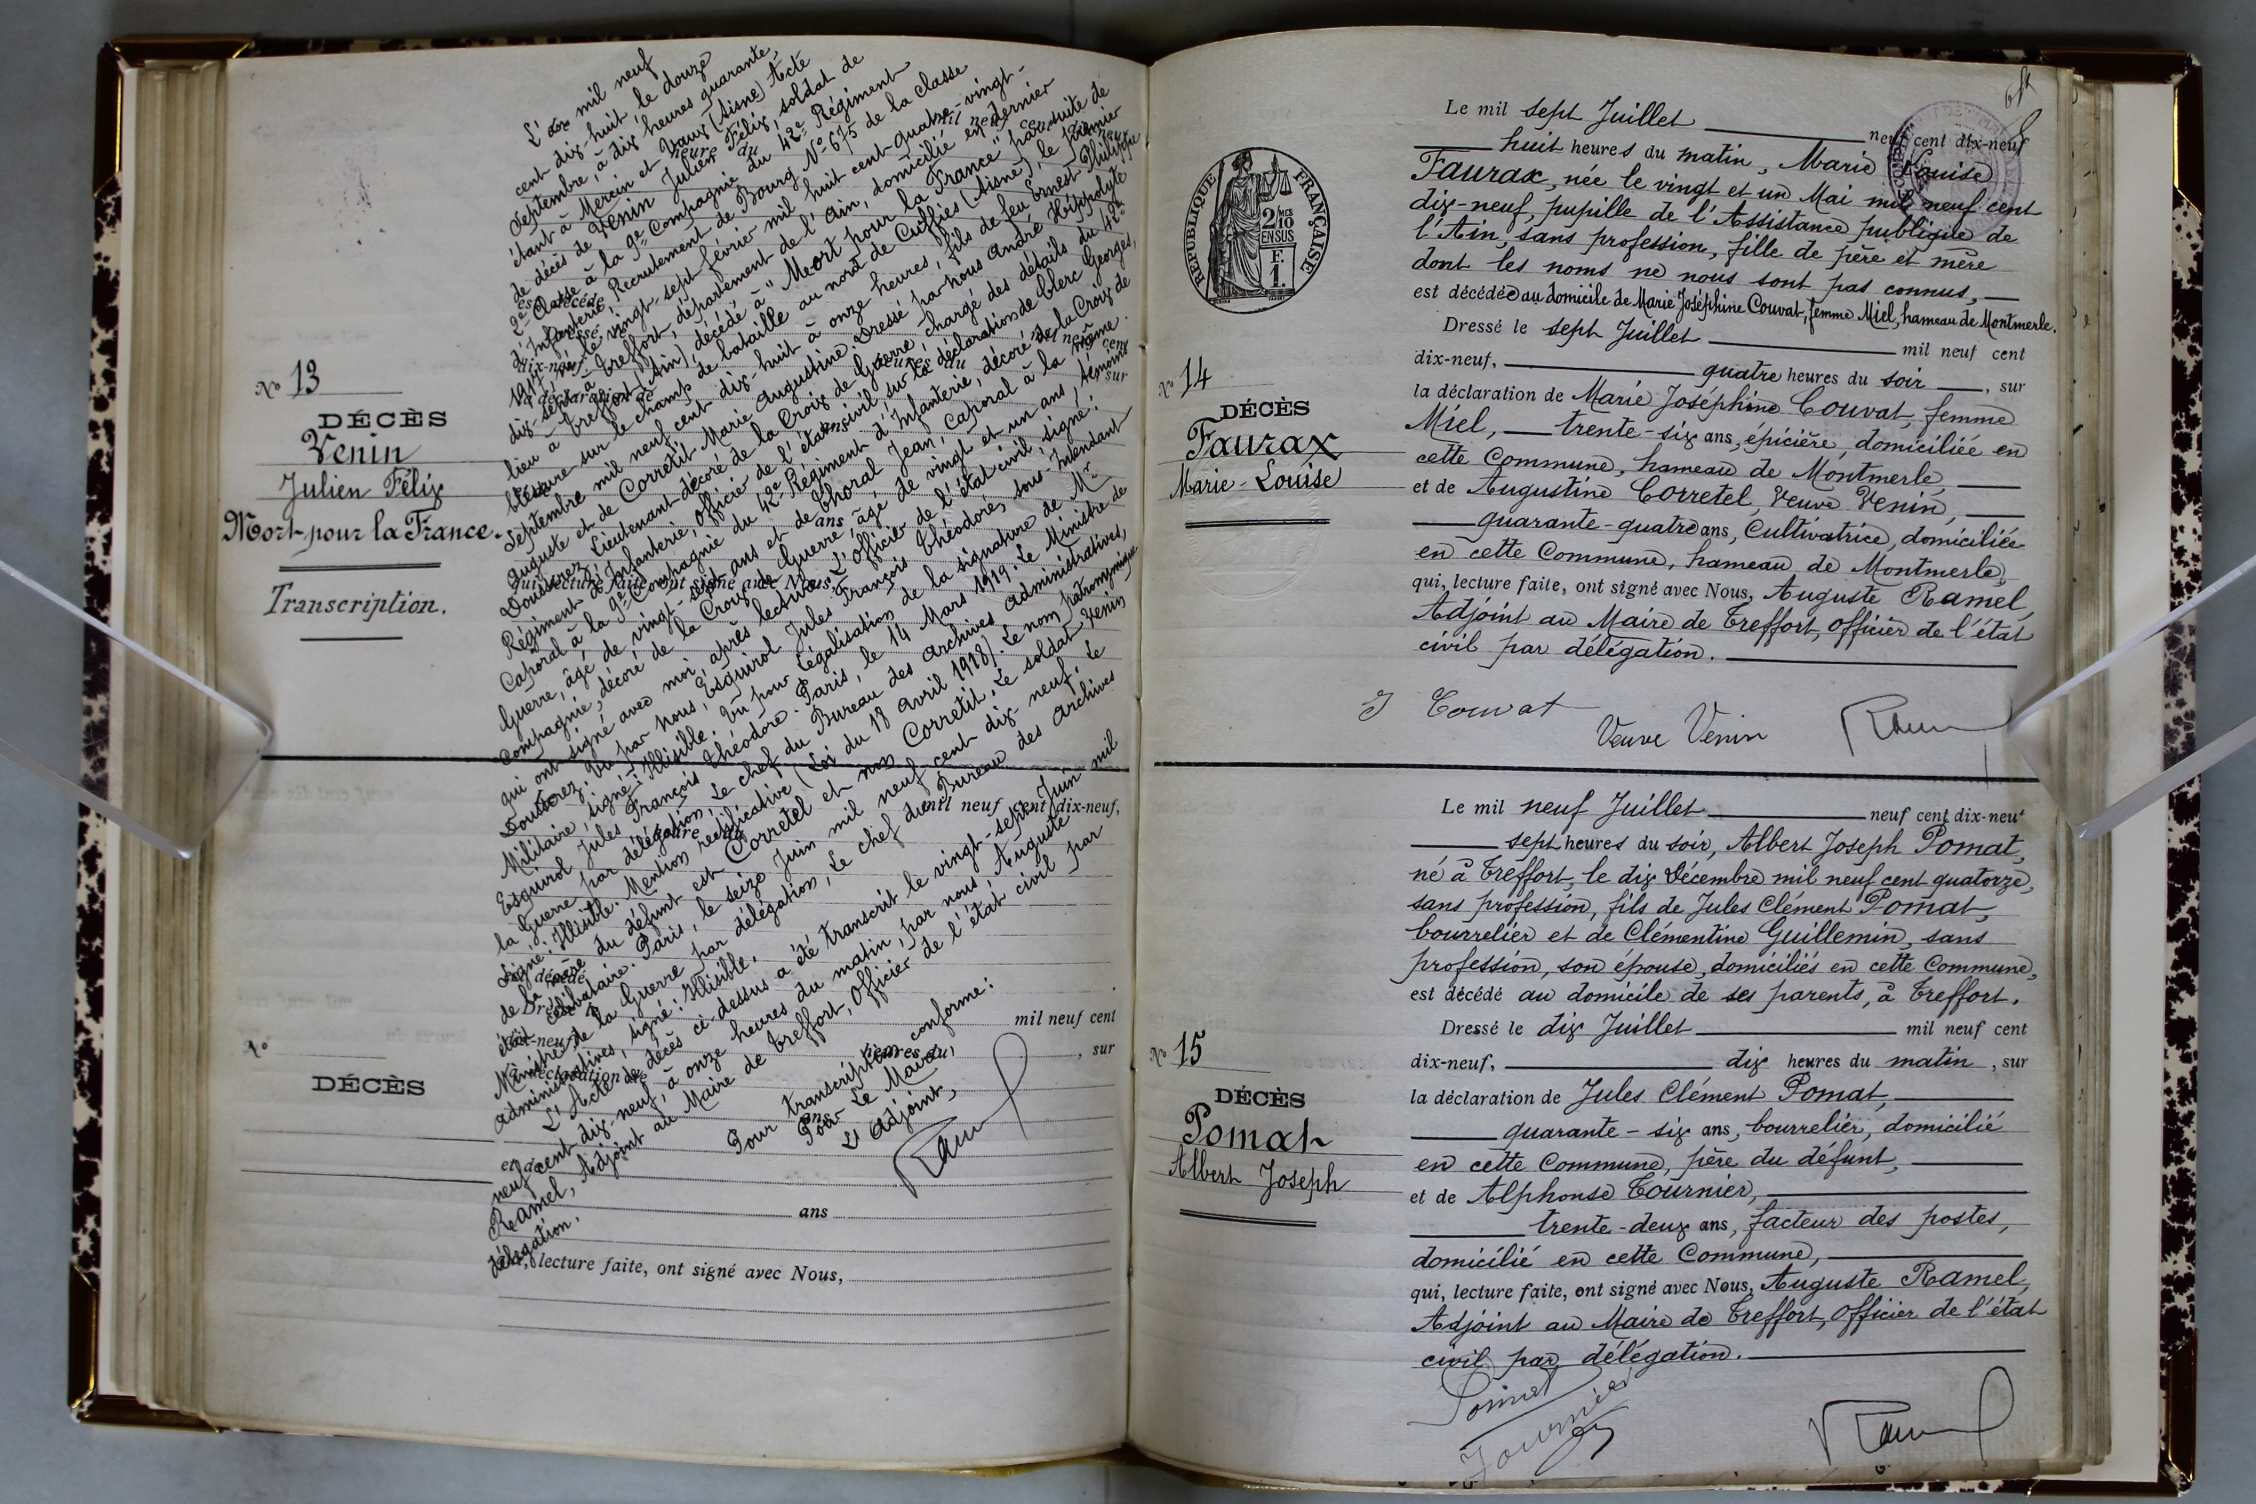 No 13
DÉCÈS
Venin
Julien Félix
Mort pour la France.
Transcription.
L'an mil neuf
cent dix-huit le douze
Septembre, à dix heures quarante,
étant à Mercin et Vaux (Aisne) Acte
de décès de Venin Julien Félix, soldat de
2e Classe à la 9e Compagnie du 42e Régiment
d'Infanterie, Recrutement de Bourg No 675 de la classe
1917, né le vingt-sept février mil huit cent quatre-vingt-
dix-sept à Treffort, département de l'Ain, domicilié en dernier
lieu à Treffort (Ain), décédé à "Mort pour la France" par suite de
blessure sur le champ de bataille au nord de Cuffies (Aisne), le premier
Septembre mil neuf cent dix-huit à onze heures, fils de feu Ernest Philippe
Auguste et de Corretit Marie Augustine. Dressé par nous André Hippolyte
Doussrez, Lieutenant décoré de la Croix de Guerre, chargé des détails du 42e
Régiment d'Infanterie, Officier de l'état civil sur la déclaration de Clerc Georges,
Caporal à la 9e Compagnie du 42e Régiment d'Infanterie, décoré de la Croix de
Guerre, âgé de vingt-sept ans et de Choral Jean, Caporal à la même
Compagnie, décoré de la Croix de Guerre, âgé de vingt et un ans, témoins
qui ont signé avec moi après lecture. L'Officier de l'état civil, signé:
Vu par nous, Esquirol Jules François Théodore, sous-Intendant
Militaire, signé: Illisible. Vu pour légalisation de la signature de Mr
Esquirol Jules François Théodore. Paris, le 14 Mars 1919. Le Ministre de
la Guerre par délégation, Le chef du Bureau des Archives Administratives,
signé: Illisible. Mention rectificative (Loi du 18 Avril 1918). Le nom patronymique
de la mère du défunt est Corretel et non Corretit. Le soldat Venin
était célibataire. Paris, le seize Juin mil neuf cent dix-neuf. Le
Ministre de la Guerre par délégation, Le chef du Bureau des Archives
administratives, signé: Illisible.
L'Acte de décès ci-dessus a été transcrit le vingt-sept Juin mil
neuf cent dix-neuf, à onze heures du matin, par nous, Auguste
Ramel, Adjoint au Maire de Treffort, Officier de l'état civil par
délégation.
Pour transcription conforme:
Pour Le Maire,
L'Adjoint,
No
DÉCÈS
mil neuf cent dix-neuf,
mil neuf cent
, sur
ans
qui, lecture faite, ont signé avec Nous,
RÉPUBLIQUE FRANÇAISE
2/10 MES
EN SUS
F.
1.
No 14
DÉCÈS
Faurax
Marie-Louise
Le mil sept Juillet neuf cent dix-neuf
huit heures du matin, Marie Louise
Faurax, née le vingt et un Mai mil neuf cent
dix-neuf, pupille de l'Assistance publique de
l'Ain, sans profession, fille de père et mère
dont les noms ne nous sont pas connus,
est décédée au domicile de Marie Joséphine Couvat, femme Miel, hameau de Montmerle.
Dressé le sept Juillet mil neuf cent
dix-neuf, quatre heures du soir, sur
la déclaration de Marie Joséphine Couvat, femme
Miel, trente-six ans, épicière, domiciliée en
cette Commune, hameau de Montmerle,
et de Augustine Corretel, Veuve Venin,
quarante-quatre ans, Cultivatrice, domiciliée
en cette Commune, hameau de Montmerle,
qui, lecture faite, ont signé avec Nous, Auguste Ramel,
Adjoint au Maire de Treffort, Officier de l'état
civil par délégation.
J Couvat
Veuve Venin
No 15
DÉCÈS
Pomat
Albert Joseph
Le mil neuf Juillet neuf cent dix-neuf
sept heures du soir, Albert Joseph Pomat,
né à Treffort, le dix Décembre mil neuf cent quatorze,
sans profession, fils de Jules Clément Pomat,
bourrelier et de Clémentine Guillemin, sans
profession, son épouse, domiciliés en cette Commune,
est décédé au domicile de ses parents, à Treffort.
Dressé le dix Juillet mil neuf cent
dix-neuf, dix heures du matin, sur
la déclaration de Jules Clément Pomat,
quarante-six ans, bourrelier, domicilié
en cette Commune, père du défunt,
et de Alphonse Tournier,
trente-deux ans, facteur des postes,
domicilié en cette Commune,
qui, lecture faite, ont signé avec Nous, Auguste Ramel,
Adjoint au Maire de Treffort, Officier de l'état
civil par délégation.
Tournier